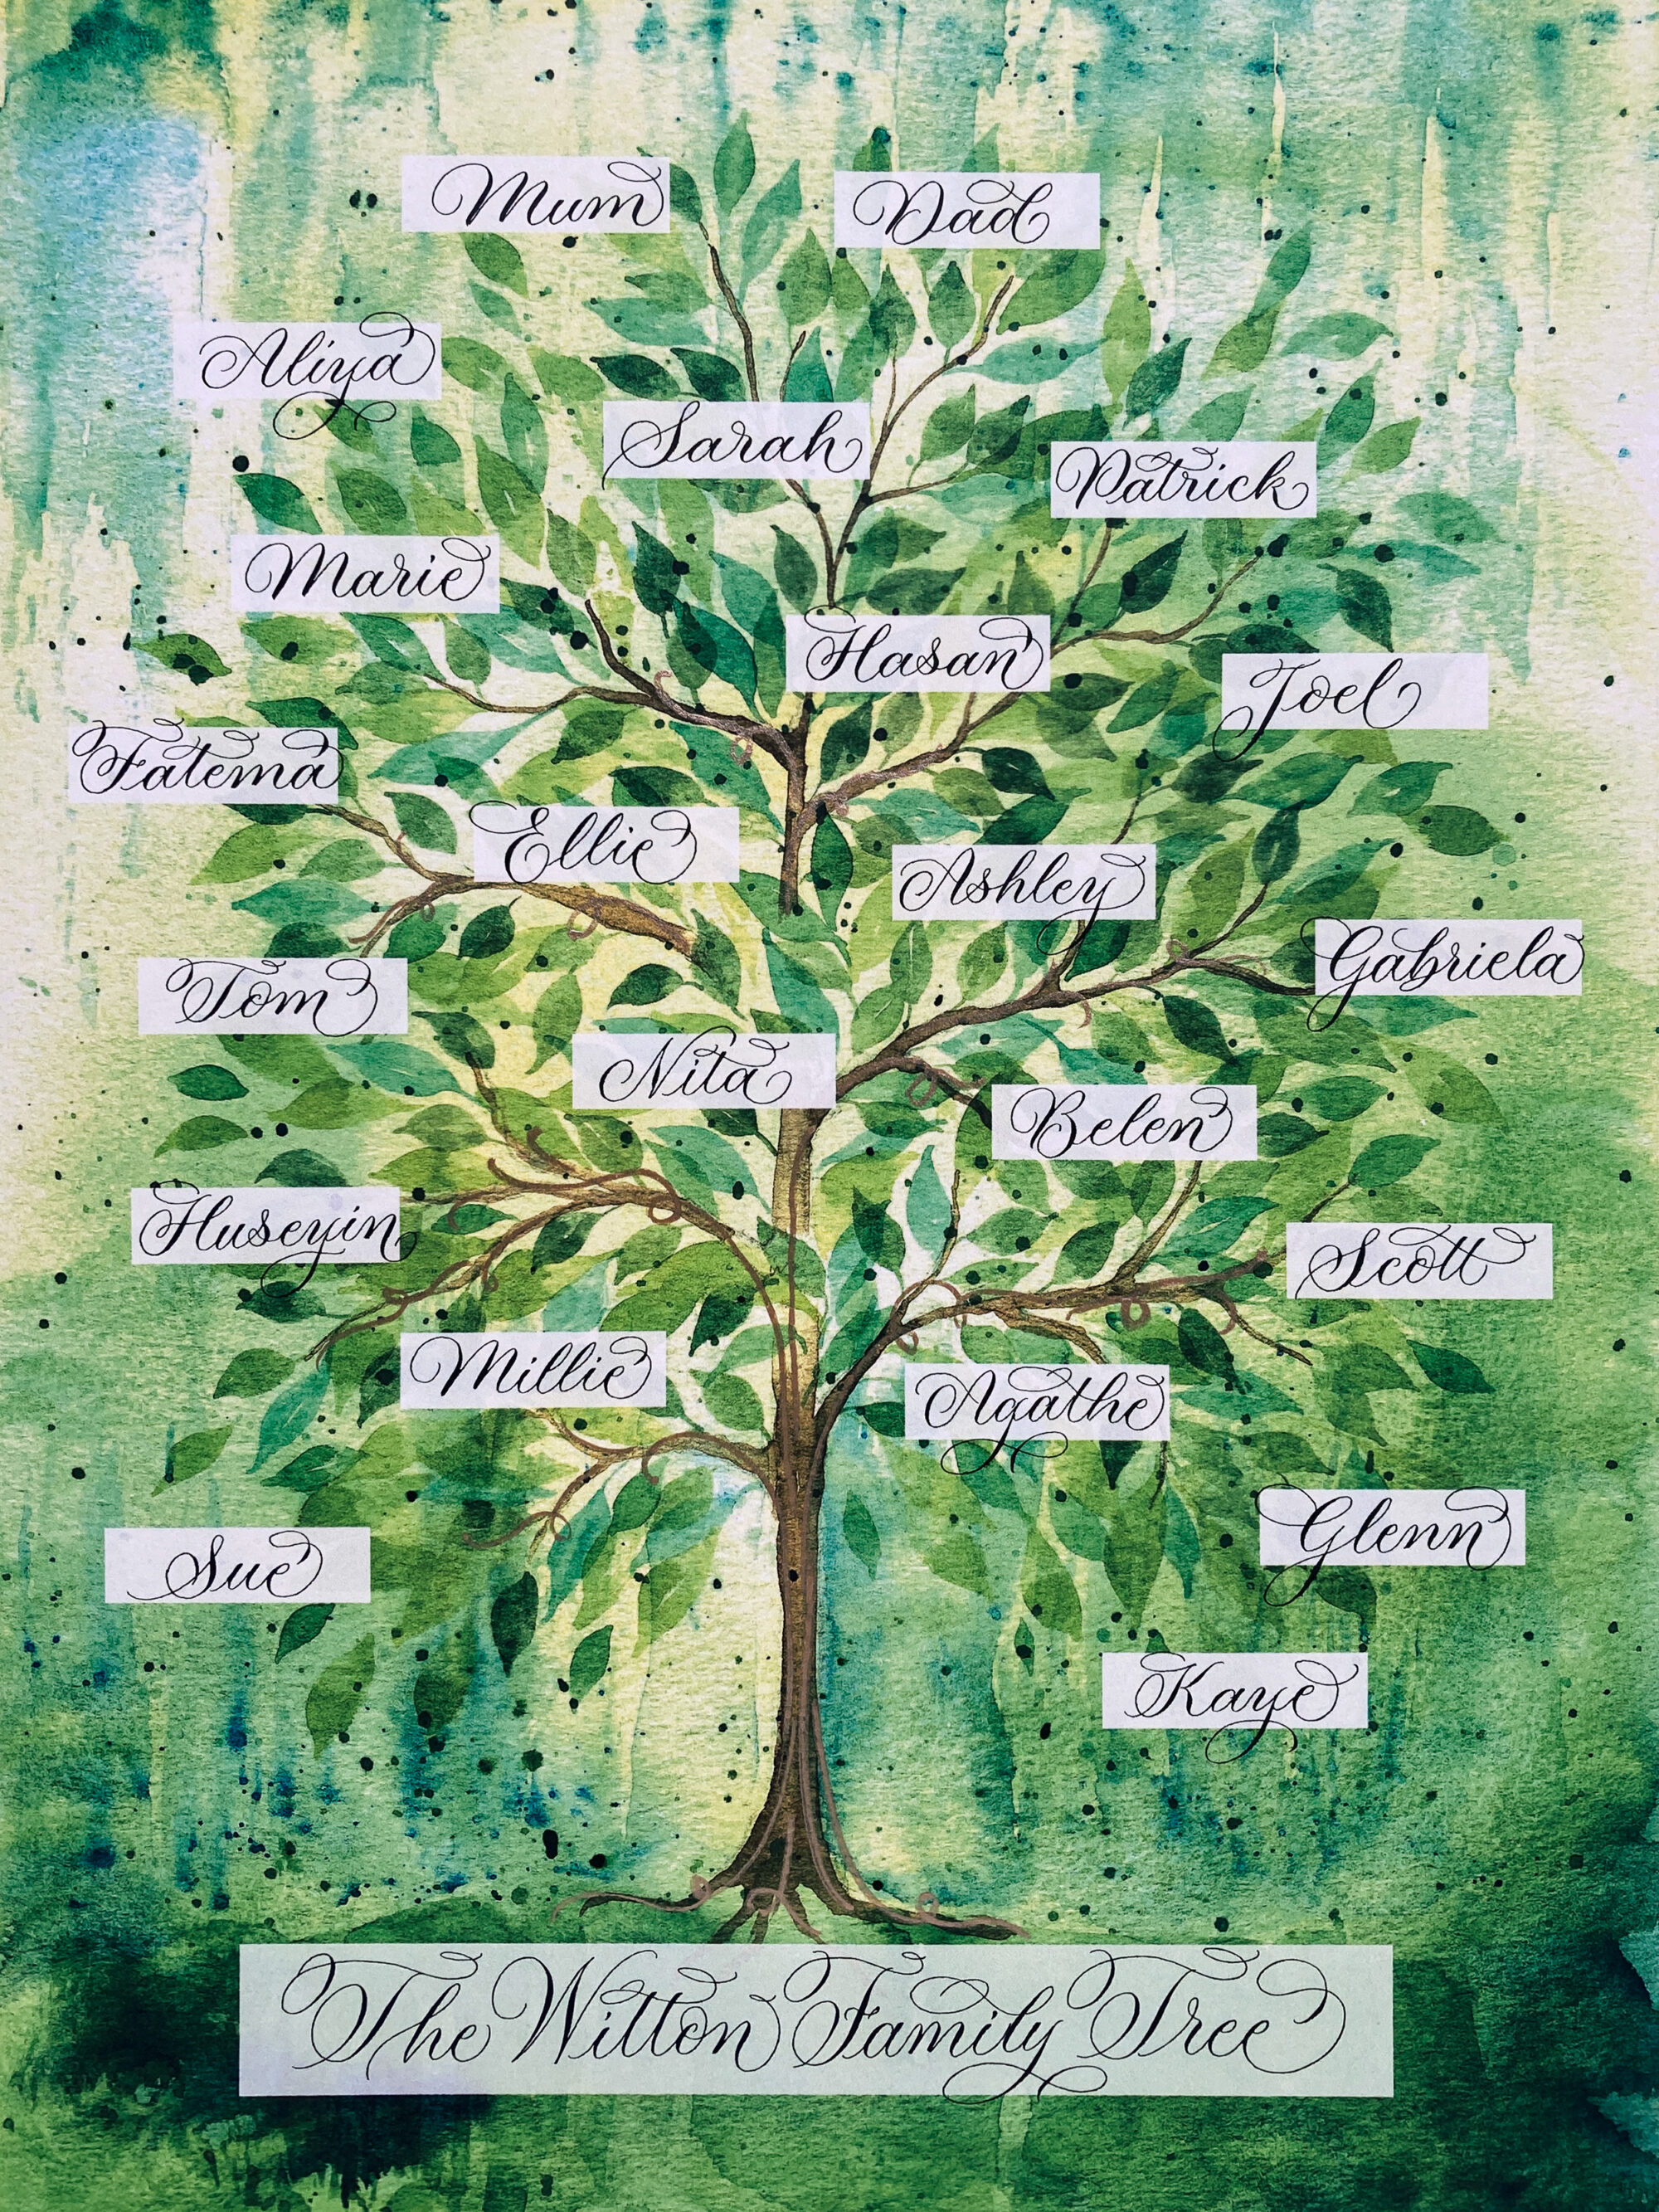 Mum
Dad
Aliya
Sarah
Patrick
Marie
Hasan
Joel
Fatema
Ellie
Ashley
Gabriela
Tom
Nita
Belen
Huseyin
Scott
Millie
Agathe
Glenn
Sue
Kaye
The Witton Family Tree